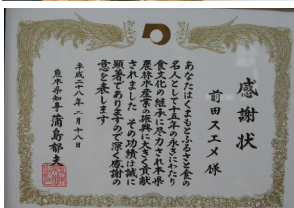 感謝状
前田スエメ様
あなたはくまもとふるさと食の
名人として十五年の永きにわたり
食文化の継承に尽力され本県
農林水産業の振興に大きく貢献
されました その功績は誠に
顕著でありますので深く感謝の
意を表します
平成二十八年二月十八日
熊本県知事 蒲島郁夫